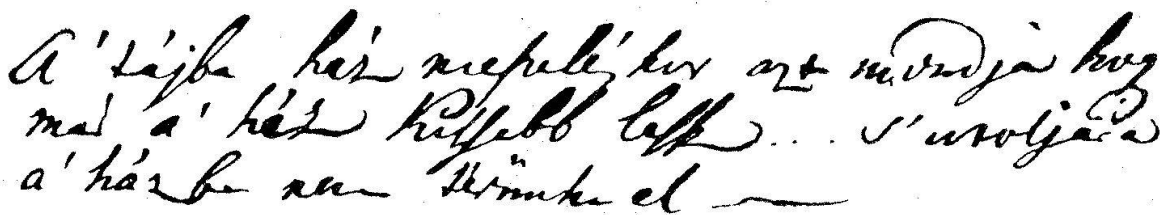 A' tájba ház mefelé, kor azt mondja hog
már a' ház kissebb lessz .... s' utoljára
a' házba nem térünk el —